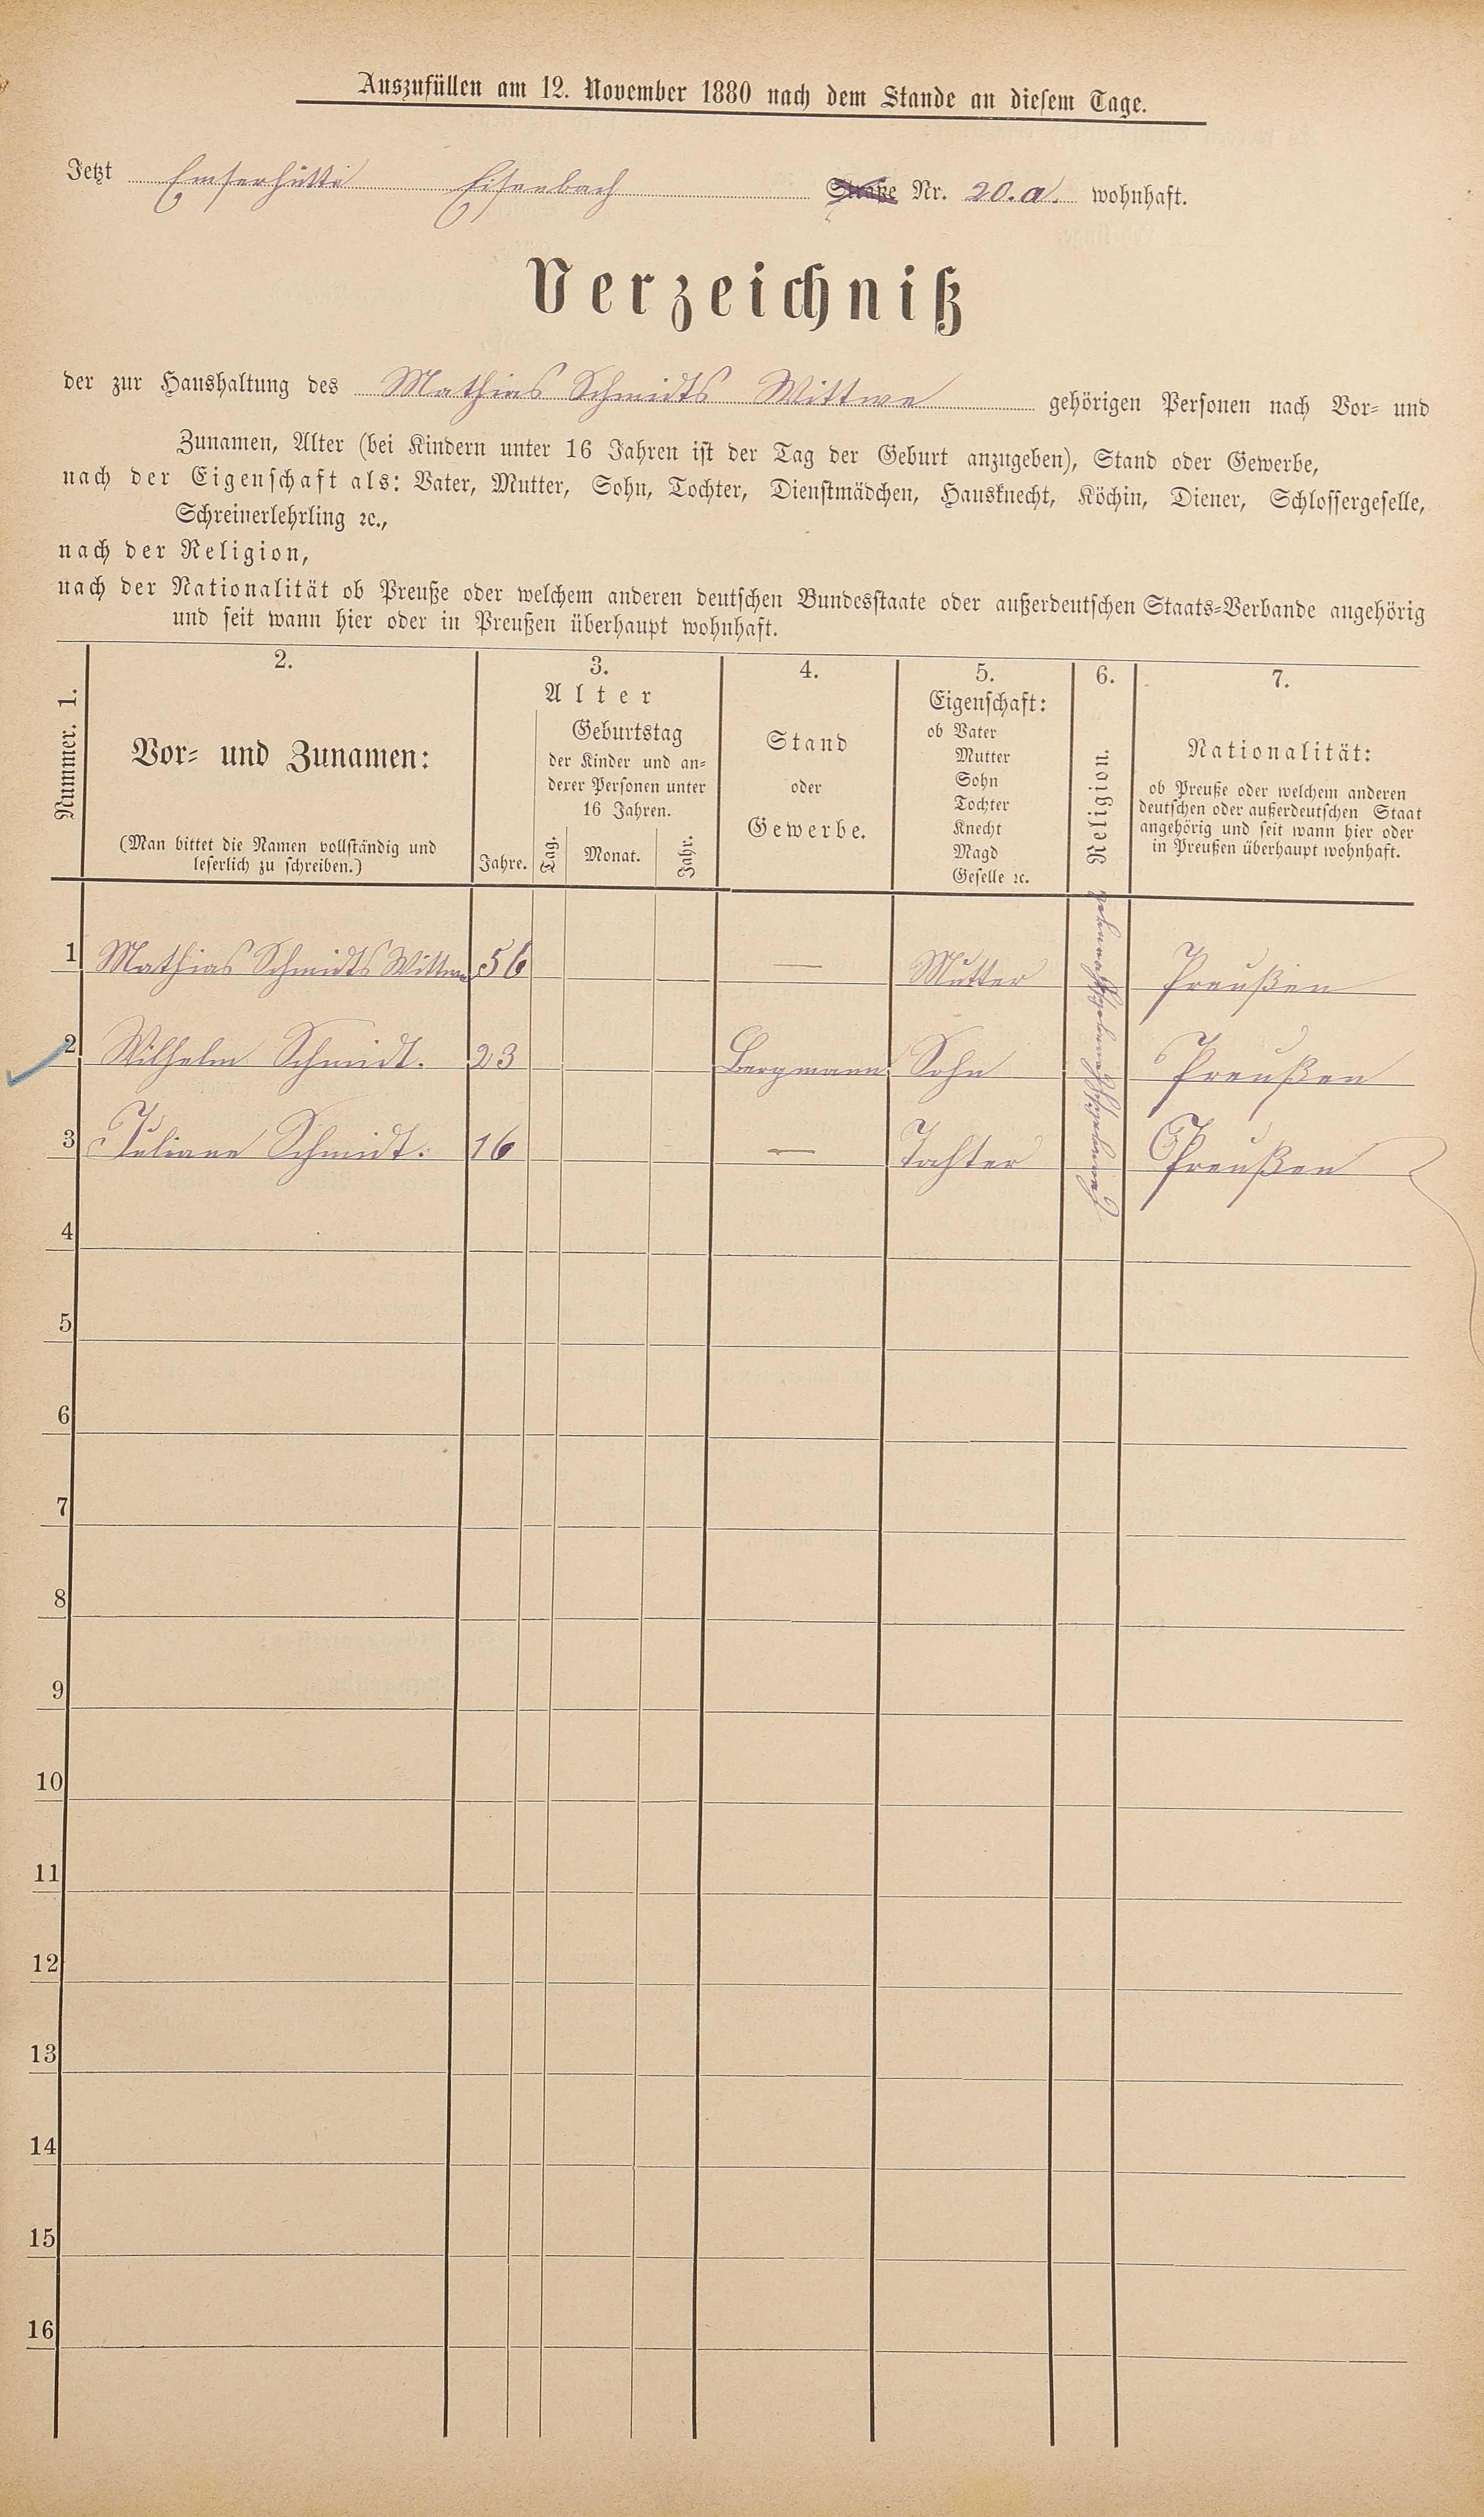 Auszufüllen am 12. November 1880 nach dem Stande an diesem Tage.
Jetzt Emserhütte Eisenbach Straße Nr. 20.a. wohnhaft.
Verzeichniß
der zur Haushaltung des Mathias Schmidts Wittwe gehörigen Personen nach Vor= und
Zunamen, Alter (bei Kindern unter 16 Jahren ist der Tag der Geburt anzugeben), Stand oder Gewerbe,
nach der Eigenschaft als: Vater, Mutter, Sohn, Tochter, Dienstmädchen, Hausknecht, Köchin, Diener, Schlossergeselle,
Schreinerlehrling ꝛc.,
nach der Religion,
nach der Nationalität ob Preuße oder welchem anderen deutschen Bundesstaate oder außerdeutschen Staats=Verbande angehörig
und seit wann hier oder in Preußen überhaupt wohnhaft.
Nummer. 1.
2.
Vor= und Zunamen:
(Man bittet die Namen vollständig und
leserlich zu schreiben.)
3.
Alter
Jahre.
Geburtstag
der Kinder und an=
derer Personen unter
16 Jahren.
Tag. Monat. Jahr.
4.
Stand
oder
Gewerbe.
5.
Eigenschaft:
ob Vater
Mutter
Sohn
Tochter
Knecht
Magd
Geselle ꝛc.
6.
Religion.
7.
Nationalität:
ob Preuße oder welchem anderen
deutschen oder außerdeutschen Staat
angehörig und seit wann hier oder
in Preußen überhaupt wohnhaft.
1 Mathias Schmidts Wittwe 56 — Mutter Preußen
2 Wilhelm Schmidt. 23 Bergmann Sohn Preußen
3 Juliane Schmidt. 16 — Tochter Preußen
4
5
6
7
8
9
10
11
12
13
14
15
16